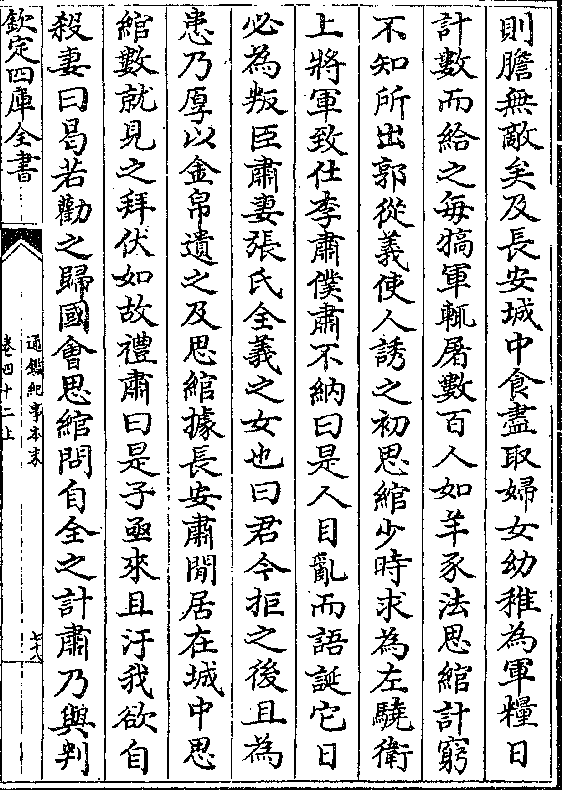 則膽無敵矣及長安城中食盡取婦女幼稚為軍糧日
計數而給之每犒軍輒屠數百人如羊豕法思綰計窮
不知所出郭從義使人誘之初思綰少時求為左驍衛
上將軍致仕李肅僕肅不納曰是人目亂而語誕它日
必為叛臣肅妻張氏全義之女也曰君今拒之後且為
患乃厚以金帛遺之及思綰據長安肅閒居在城中思
綰數就見之拜伏如故禮肅曰是子亟來且汙我欲自
殺妻曰曷若勸之歸國會思綰問自全之計肅乃與判
欽定四庫全書
通鑑紀事本末
卷四十二上
七十八